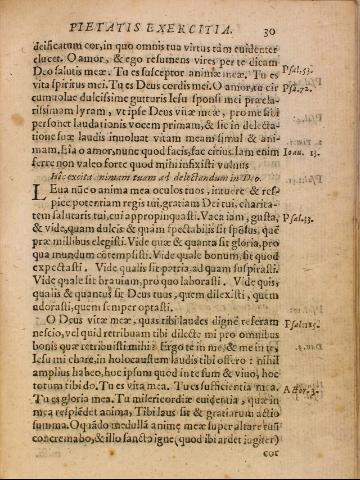 PIETATIS EXERCITIA. 30
deificatum cor, in quo omnis tua virtus tàm euidenter
elucet. O amor, & ego resumens vires per te dicam
Deo salutis meæ. Tu es susceptor animæ meæ. Tu es Psal. 53.
vita spiritus mei. Tu es Deus cordis mei. O amor, tu cir Psa. 72.
cumuolue dulcissime gutturis Iesu sponsi mei præcla-
rissimam lyram, vt ipse Deus vitæ meæ, pro me sibi
personet laudationis vocem primam, & sic in delecta-
tione suæ laudis inuoluat vitam meam simul & ani-
mam. Eia o amor, nunc quod facis, fac citius. Iam enim Ioan. 13.
ferre non valeo forte quod mihi infixisti vulnus
Hic excita animam tuam ad delectandum in Deo.
LEua nũc o anima mea oculos tuos, intuere & res-
pice potentiam regis tui, gratiam Dei tui, charita-
tem salutaris tui, cui appropinquasti. Vaca iam, gusta,
& vide, quam dulcis & quam spectabilis sit spõsus, quẽ Psal. 33.
præ millibus elegisti. Vide quæ & quanta sit gloria, pro
qua mundum cõtempsisti. Vide quale bonum, sit quod
expectasti. Vide qualis sit patria, ad quam suspirasti.
Vide quale sit brauium, pro quo laborasti. Vide quis,
qualis & quantus sit Deus tuus, quem dilexisti, quem
adorasti, quem semper optasti.
O Deus vitæ meæ, quas tibi laudes dignè referam
nescio, vel quid retribuam tibi dilecte mi pro omnibus Psal. 115.
bonis quæ retribuisti mihi? Ergo te in me, & me in te,
Iesu mi chare, in holocaustum laudis tibi offero: nihil
amplius habeo, hoc ipsum quod in te sum & viuo, hoc
totum tibi do. Tu es vita mea. Tu es sufficientia mea. Actor. 3.
Tu es gloria mea. Tu misericordiæ euidentia, quæ in
mea resplẽdet anima, Tibi laus sit & gratiarum actio
summa. O quãdo medullã animę meæ super altare tuũ
concremabo, & illo sancto igne (quod ibi ardet iugiter)
cor